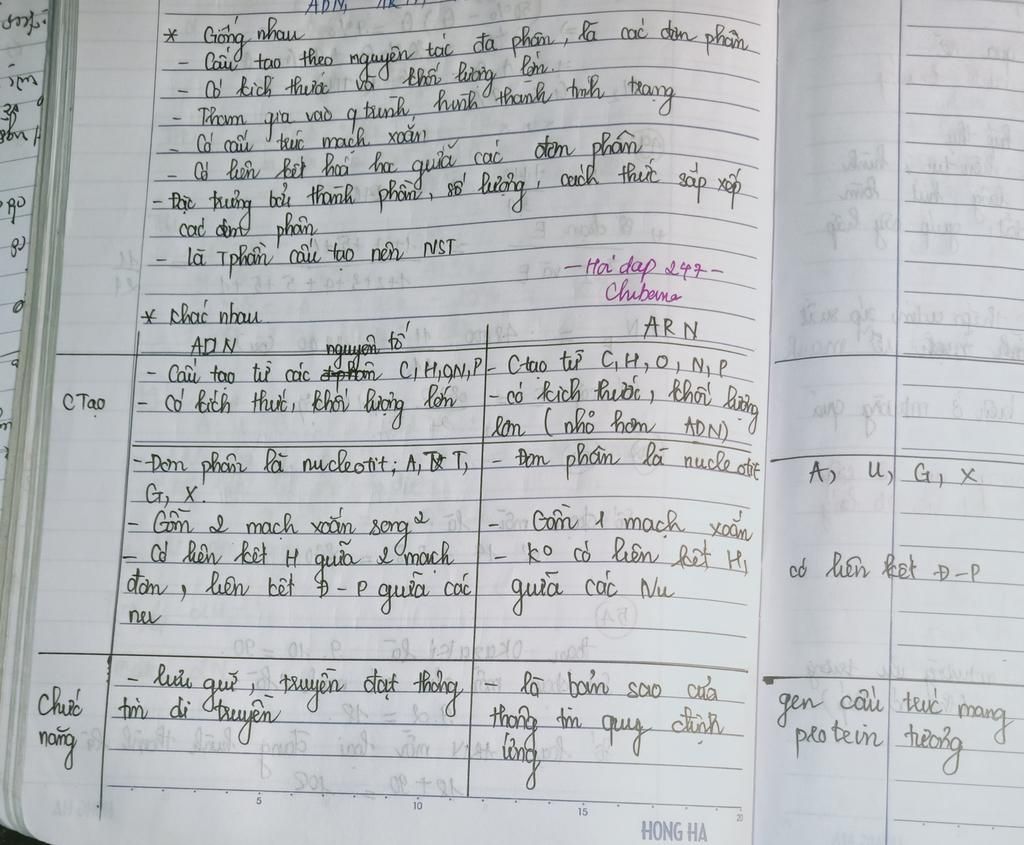 ADN,
* Giống nhau
- Cấu tạo theo nguyên tắc đa phân, là các đơn phân
- Có kích thước và khối lượng lớn.
- Tham gia vào q trình, hình thành tính trạng
- Có cấu trúc mạch xoắn
- Có liên kết hoá học giữa các đơn phân
- Đặc trưng bởi thành phần, số lượng, cách thức sắp xếp
các đơn phân
- là Tphần cấu tạo nên NST
- Hỏi đáp 247 -
Chibana
* khác nhau
ADN ARN
nguyên tố
- Cấu tạo từ các C,H,O,N,P - Ctạo từ C, H, O, N, P
CTạo - Có kích thước, khối lượng lớn - có kích thước, khối lượng
lớn (nhỏ hơn ADN)
- Đơn phân là nucleotit; A, T, - Đơn phân là nucleotit A, U, G, X
G, X.
- Gồm 2 mạch xoắn song² - Gồm 1 mạch xoắn
- Có liên kết H giữa 2 mạch - ko có liên kết H, có liên kết Đ-P
đơn, liên kết Đ-P giữa các giữa các Nu
nu
Chức - lưu giữ, truyền đạt thông - là bản sao của gen cấu trúc mang
năng tin di truyền thông tin quy định protein tương
ứng
5 10 15 20
HONG HA